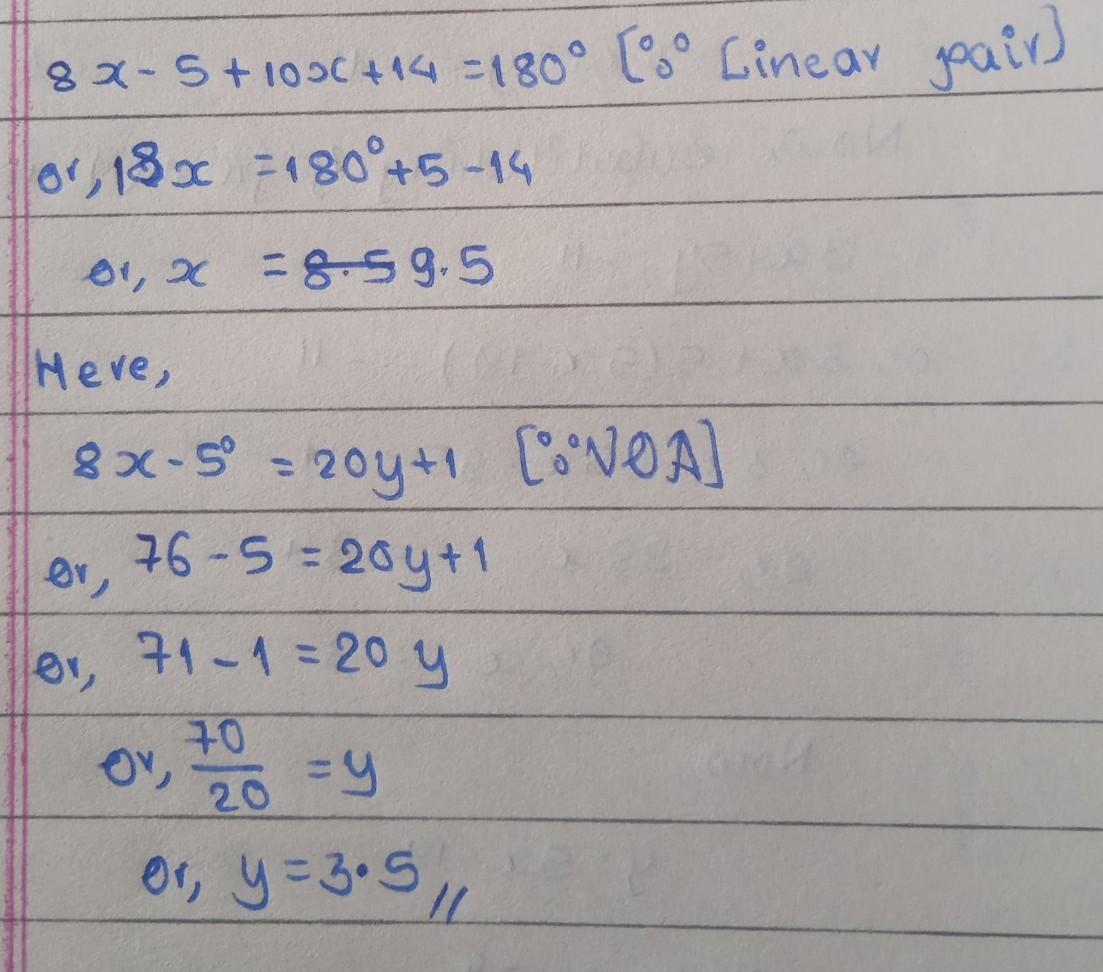 8x - 5 + 10x + 14 = 180° [∵ Linear pair]
or, 18x = 180° + 5 - 14
or, x = ~~8.5~~ 9.5
Here,
8x - 5° = 20y + 1 [∵ VOA]
or, 76 - 5 = 20y + 1
or, 71 - 1 = 20 y
or, 70/20 = y
or, y = 3.5 //